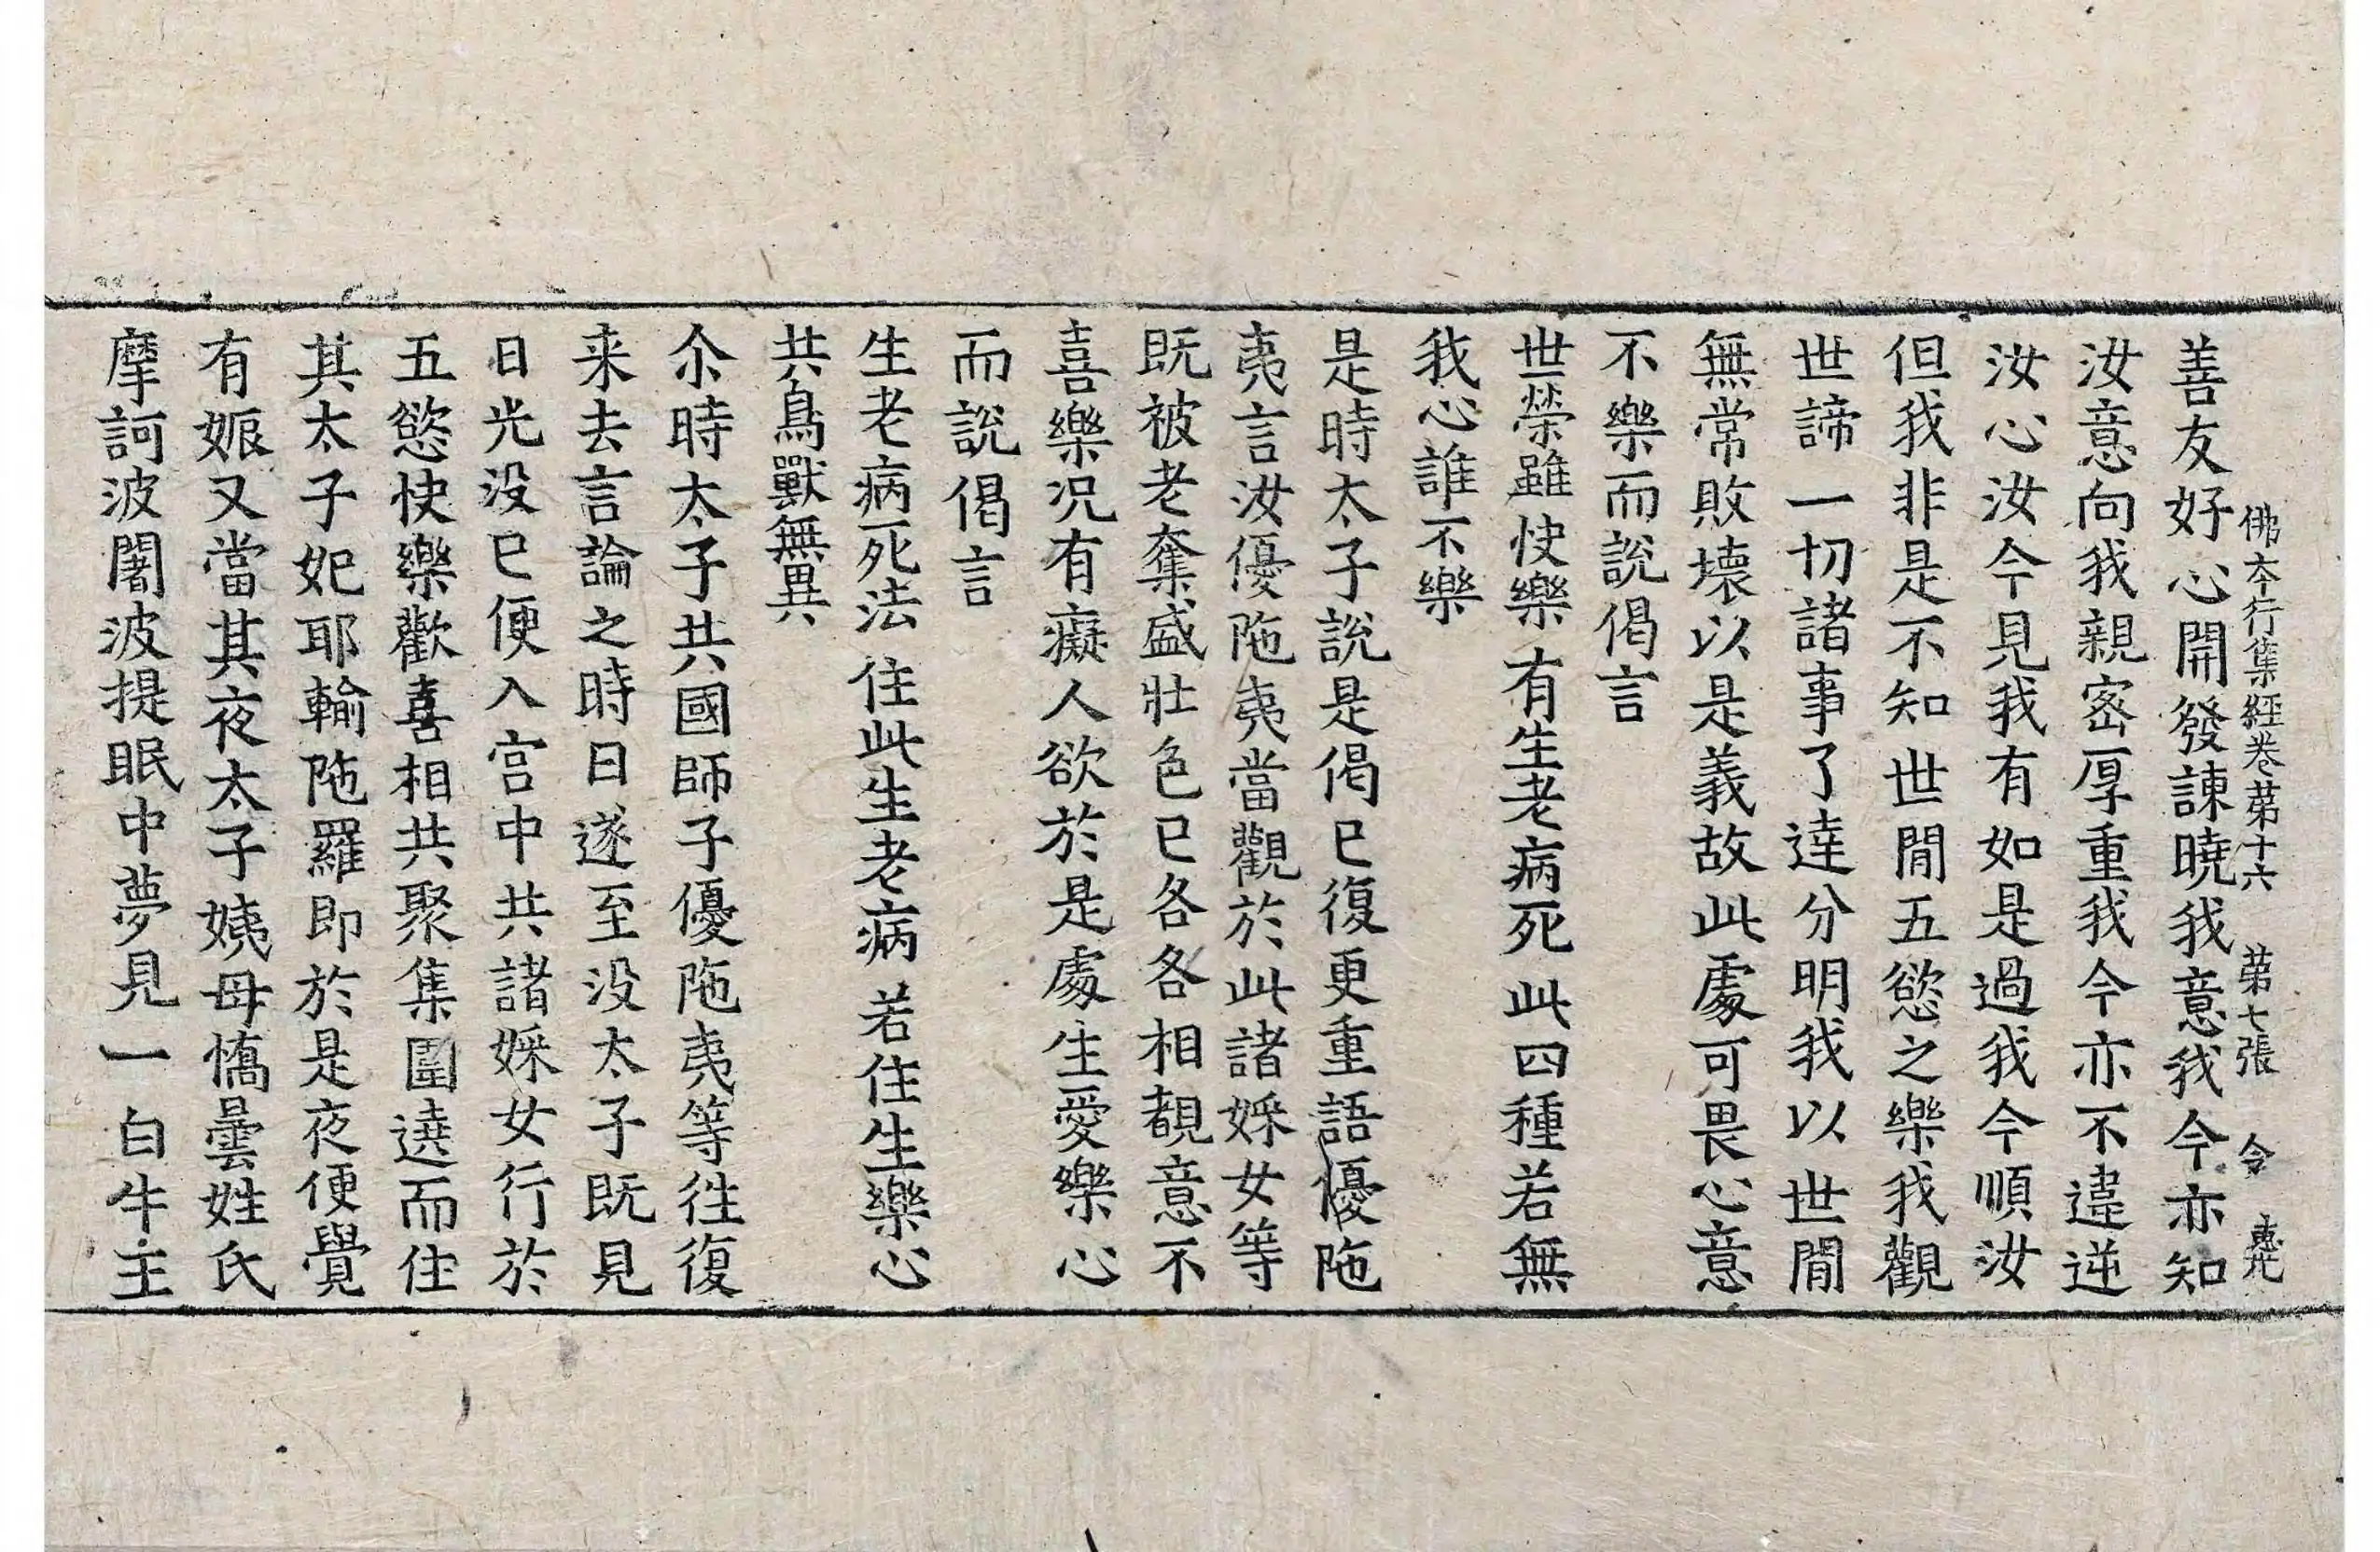 佛本行集經卷第十六 第七張 令
善友好心開發諫曉我意我今亦知
汝意向我親密厚重我今亦不違逆
汝心汝今見我有如是過我今順汝
但我非是不知世間五慾之樂我觀
世諦一切諸事了達分明我以世間
無常敗壞以是義故此處可畏心意
不樂而說偈言
世榮雖快樂 有生老病死 此四種若無
我心誰不樂
是時太子說是偈已復更重語優陁
夷言汝優陁夷當觀於此諸婇女等
既被老奪盛壯色已各各相覩意不
喜樂况有癡人欲於是處生愛樂心
而說偈言
生老病死法 住此生老病 若住生樂心
共鳥獸無異
尒時太子共國師子優陁夷等往復
来去言論之時日遂至没太子既見
日光没已便入宫中共諸婇女行於
五慾快樂歡喜相共聚集圍遶而住
其太子妃耶輸陁羅即於是夜便覺
有娠又當其夜太子姨母憍曇姓氏
摩訶波闍波提眠中夢見一白牛主